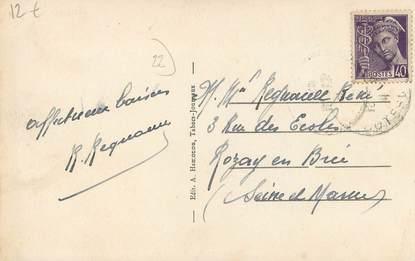 12 €
22
affectueux baisers
R. Regnault
Edit. A. Hamonou, Tabacs-Journaux
M. Mme Regnault René
3 Rue des Ecoles
Rozay en Brie
(Seine et Marne)
POSTES 40